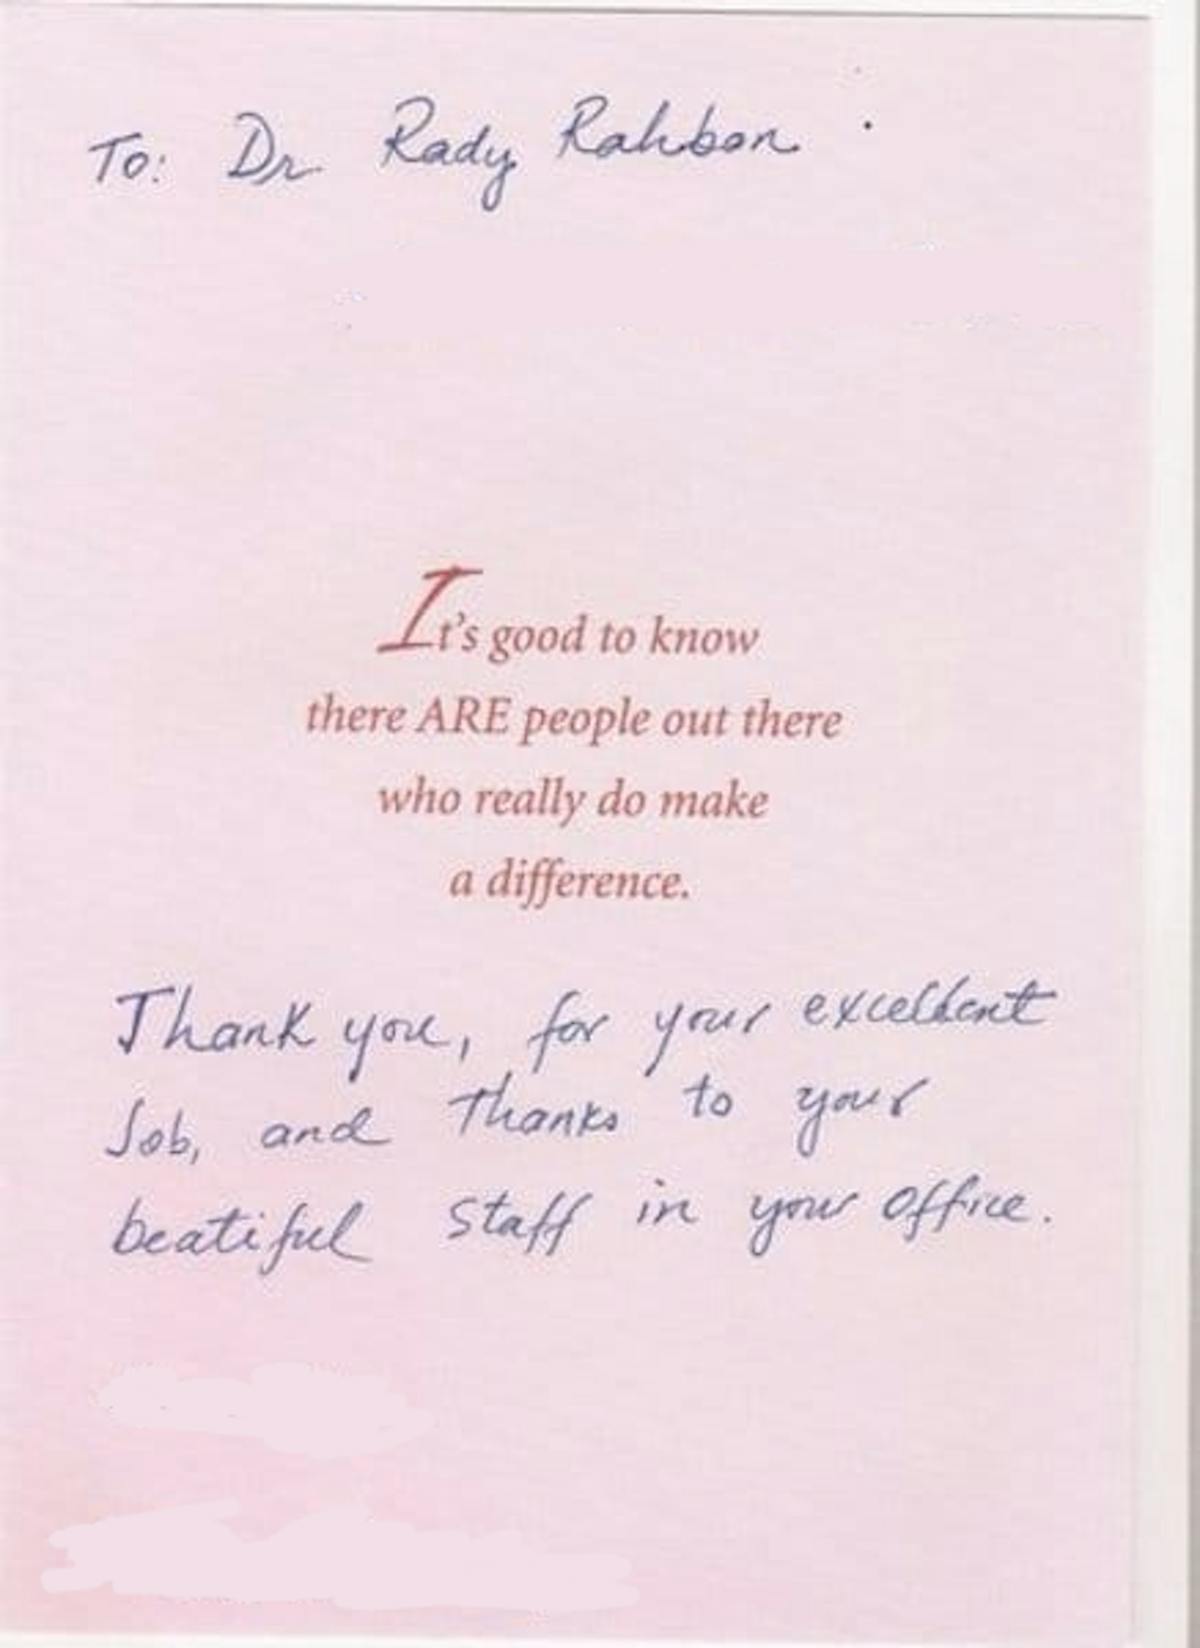 To: Dr Rady Rahban
It's good to know
there ARE people out there
who really do make
a difference.
Thank you, for your excellent
Job, and Thanks to your
beatiful staff in your office.